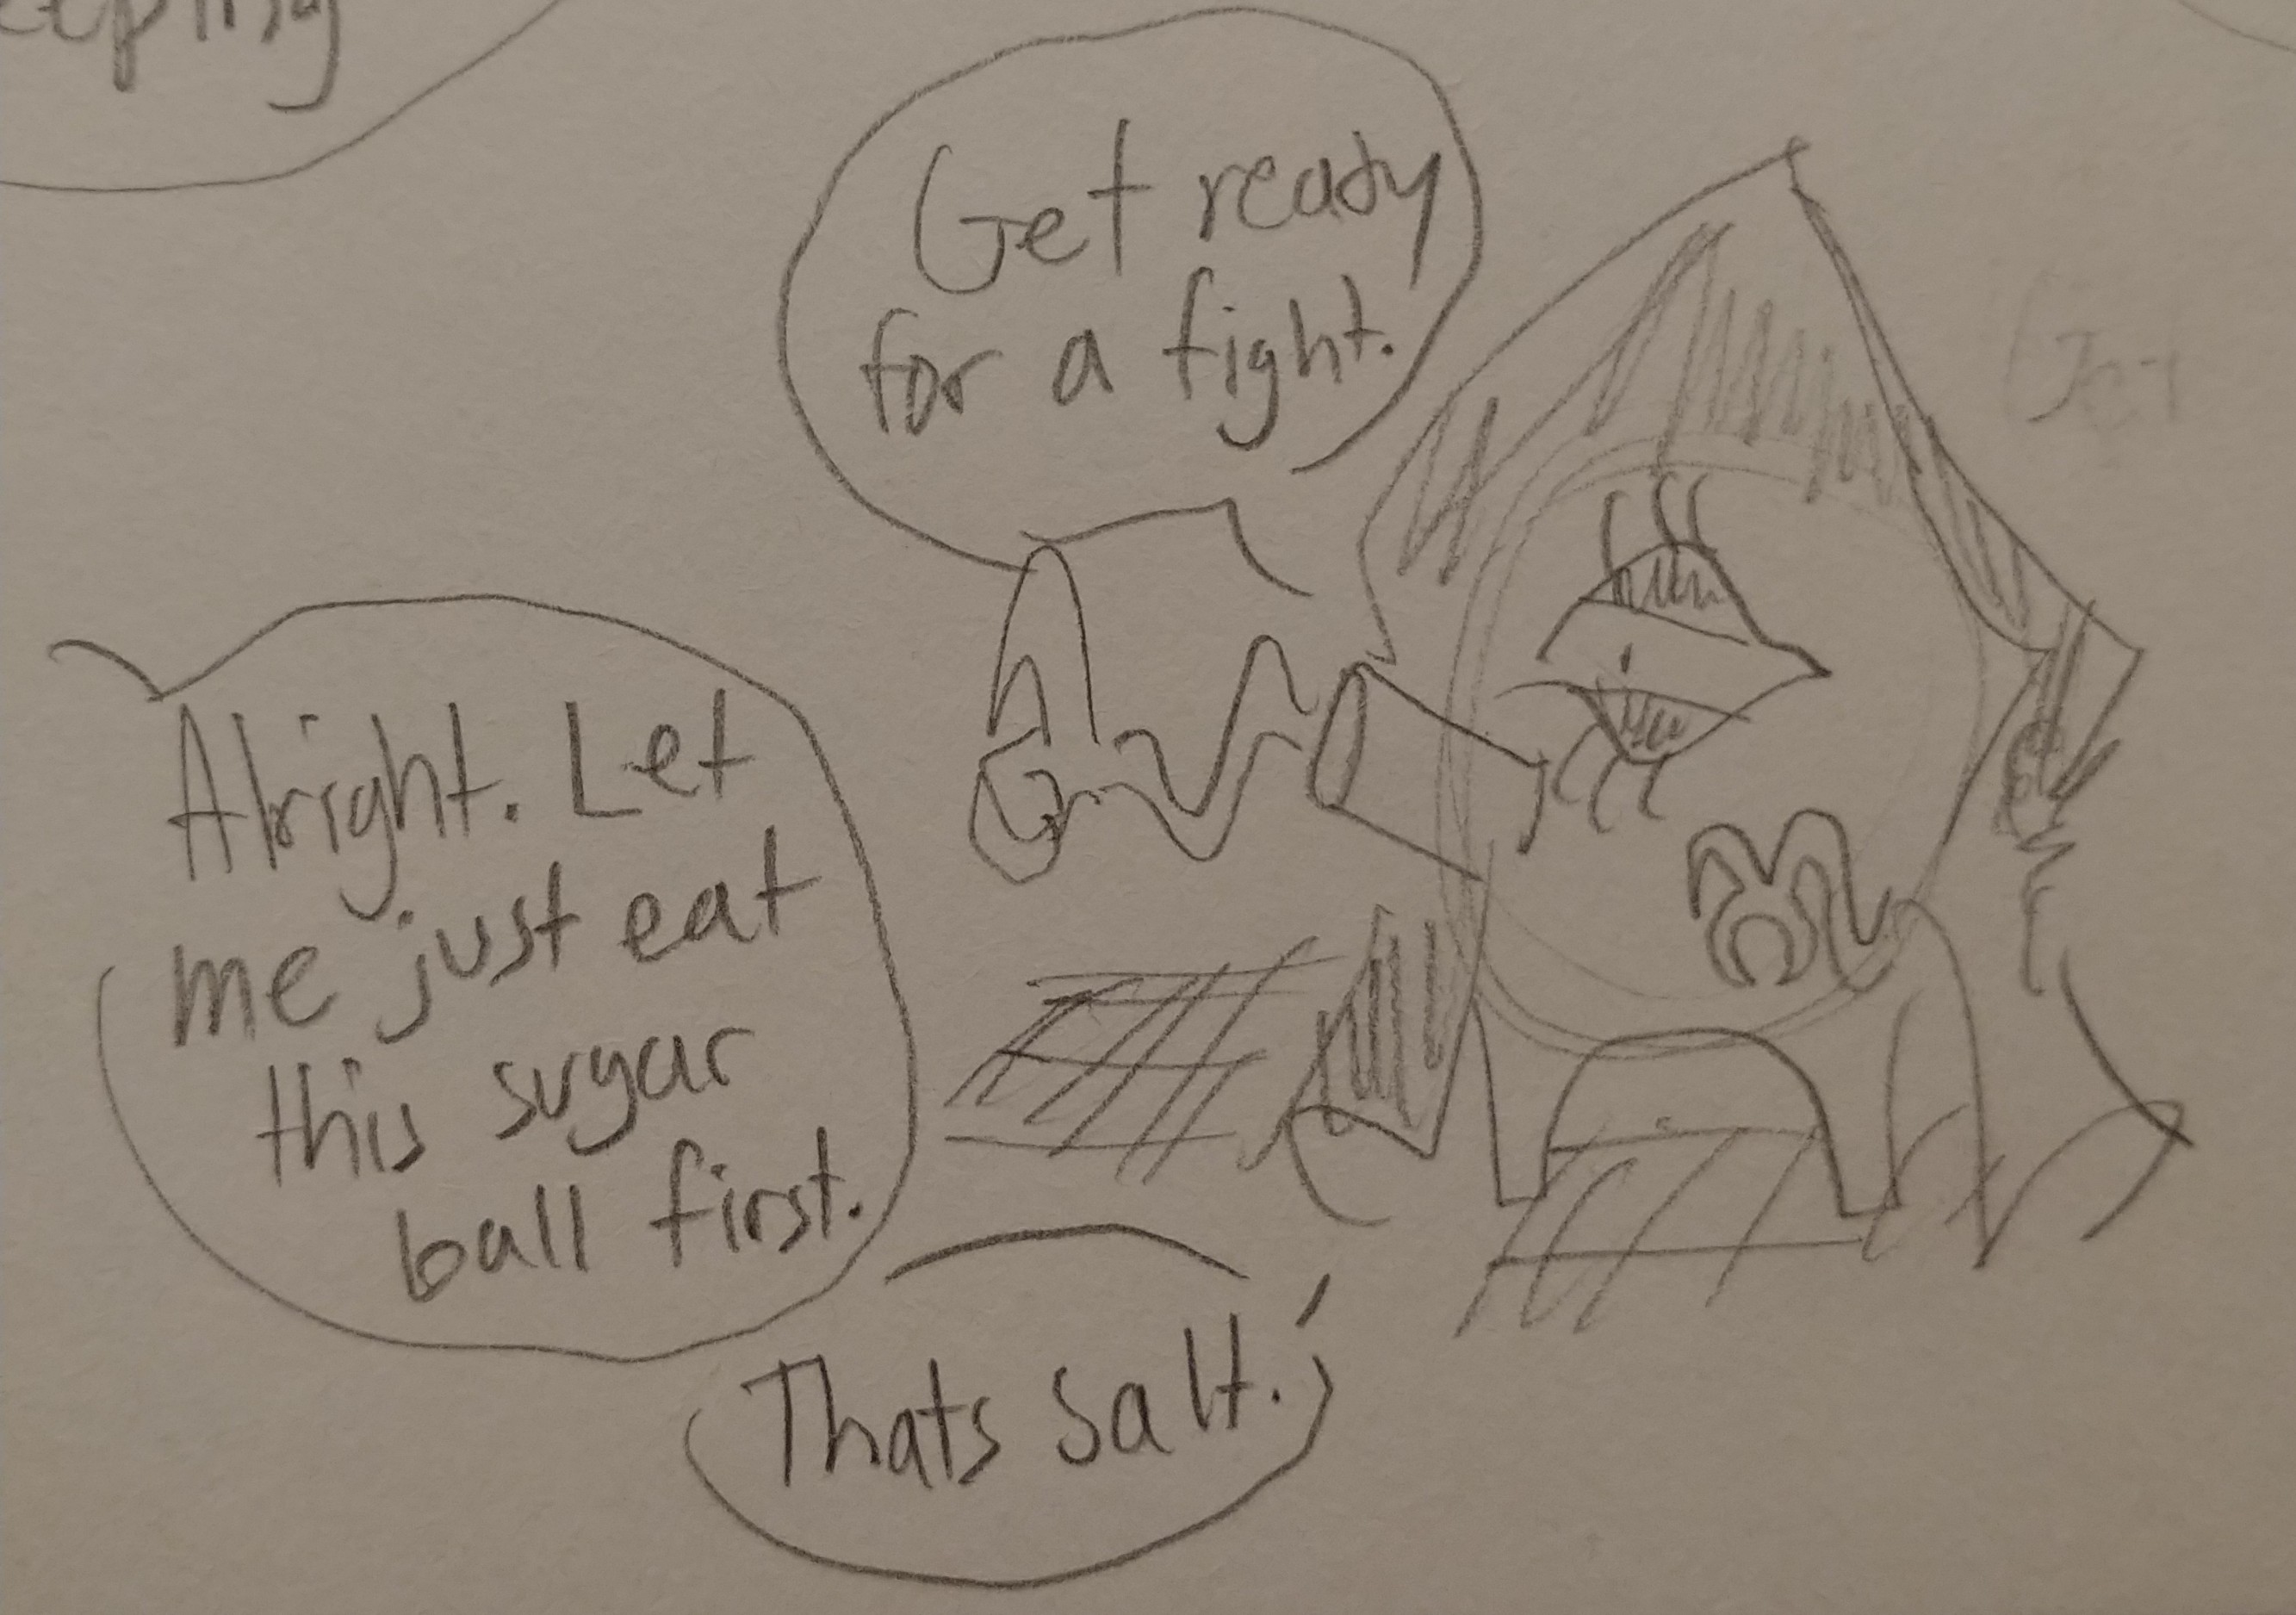 eeping
Get ready
for a fight.
Alright. Let
me just eat
this sugar
ball first.
Thats salt.
Get